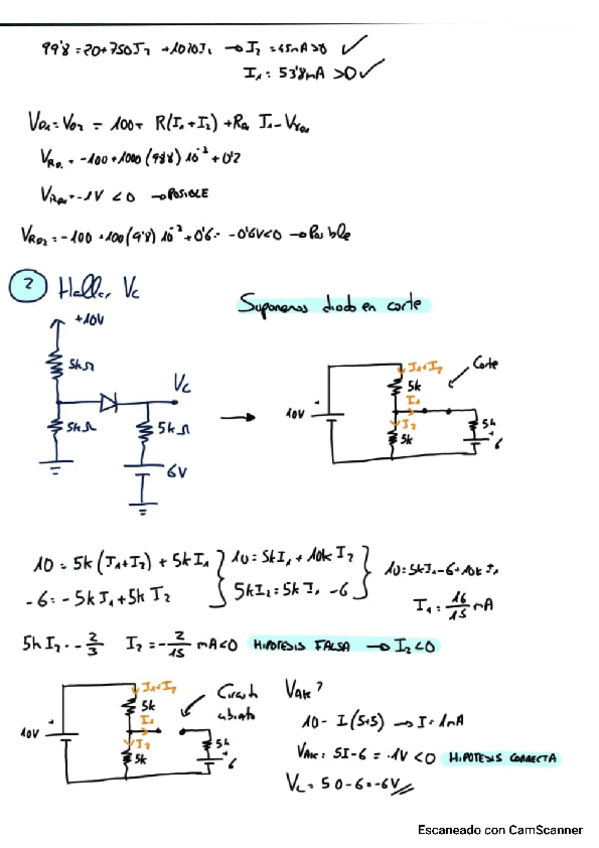 99'8 = 20 + 750 I₂ + 1020 I₁ → I₂ = 45mA > 0 ✓
I₁ = 53'8mA > 0 ✓
R(I₁+I₂) + Ra I₁ -
= -100 + 1000 (98'8) 10⁻³ + 0'2
= -1V < 0 → POSIBLE
= -100 + 100 (9'8) 10⁻² + 0'6 = -0'6V < 0 → Posible
2 Hallar Vc
Suponemos diodo en corte
+10V
5kΩ
Vc
5kΩ
5kΩ
6V
I₁+I₂
Corte
5k
I₁
10V
I₂
5k
5k
6
10 = 5k (I₁+I₂) + 5k I₂ } 10 = 5k I₁ + 10k I₂ } 10 = 5k I₁ - 6 + 10k I₁
-6 = -5k I₁ + 5k I₂ } 5k I₂ = 5k I₁ - 6
I₁ = 16/15 mA
5k I₂ = -2/3 I₂ = -2/15 mA < 0 HIPOTESIS FALSA → I₂ < 0
I₁+I₂
Circuito
abierto
5k
I₁
10V
I₂
5k
5k
6
?
10 - I(5+5) → I = 1mA
5I - 6 = -1V < 0 HIPOTESIS CORRECTA
= 5·0 - 6 = -6V
Escaneado con CamScanner